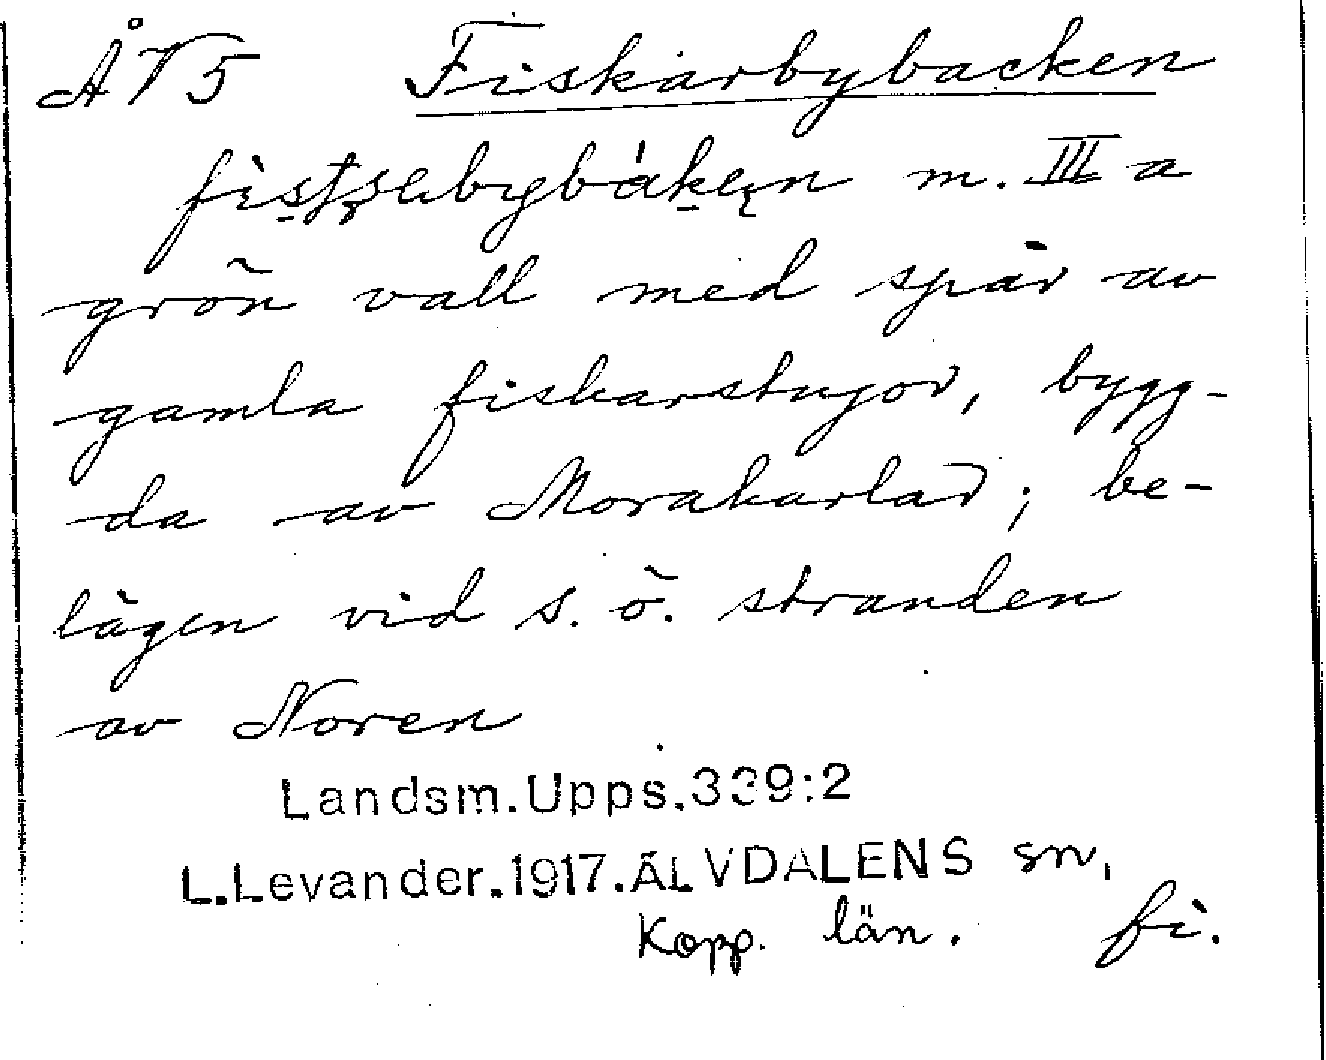 ÅV5 Fiskarbybacken
m. III a
grön vall med spår av
gamla fiskarstugor, bygg-
da av Morakarlar; be-
lägen vid s. ö. stranden
av Noren
Landsm. Upps. 339:2
L. Levander. 1917. ÄLVDALENS sn,
Kopp. län. fi.